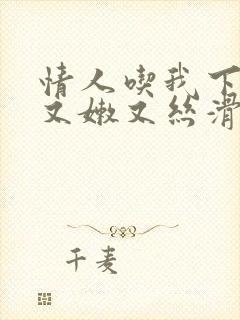 情人喫我下
又嫩又丝滑
千麦